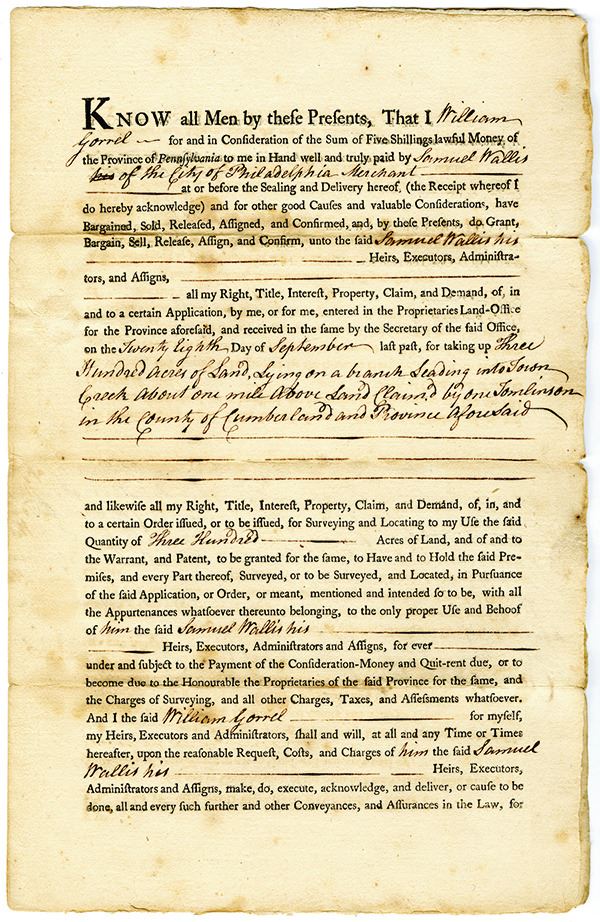 KNOW all Men by theſe Preſents, That I William
Gorrel for and in Conſideration of the Sum of Five Shillings lawful Money of
the Province of Pennſylvania to me in Hand well and truly paid by Samuel Wallis
of the City of Philadelphia Merchant
at or before the Sealing and Delivery hereof, (the Receipt whereof I
do hereby acknowledge) and for other good Cauſes and valuable Conſiderations, have
Bargained, Sold, Releaſed, Aſſigned, and Confirmed, and, by theſe Preſents, do Grant,
Bargain, Sell, Releaſe, Aſſign, and Confirm, unto the ſaid Samuel Wallis his
Heirs, Executors, Adminiſtra-
tors, and Aſſigns,
all my Right, Title, Intereſt, Property, Claim, and Demand, of, in
and to a certain Application, by me, or for me, entered in the Proprietaries Land-Office
for the Province aforeſaid, and received in the ſame by the Secretary of the ſaid Office,
on the Twenty Eighth Day of September laſt paſt, for taking up Three
Hundred Acres of Land, Lying on a branch Leading into Town
Creek About one mile Above Land Claim'd by one Tomlinson
in the County of Cumberland and Province Afore Said
and likewiſe all my Right, Title, Intereſt, Property, Claim, and Demand, of, in, and
to a certain Order iſſued, or to be iſſued, for Surveying and Locating to my Uſe the ſaid
Quantity of Three Hundred Acres of Land, and of and to
the Warrant, and Patent, to be granted for the ſame, to Have and to Hold the ſaid Pre-
miſes, and every Part thereof, Surveyed, or to be Surveyed, and Located, in Purſuance
of the ſaid Application, or Order, or meant, mentioned and intended ſo to be, with all
the Appurtenances whatſoever thereunto belonging, to the only proper Uſe and Behoof
of him the ſaid Samuel Wallis his
Heirs, Executors, Adminiſtrators and Aſſigns, for ever
under and ſubject to the Payment of the Conſideration-Money and Quit-rent due, or to
become due to the Honourable the Proprietaries of the ſaid Province for the ſame, and
the Charges of Surveying, and all other Charges, Taxes, and Aſſeſſments whatſoever.
And I the ſaid William Gorrel for myſelf,
my Heirs, Executors and Adminiſtrators, ſhall and will, at all and any Time or Times
hereafter, upon the reaſonable Requeſt, Coſts, and Charges of him the ſaid Samuel
Wallis his Heirs, Executors,
Adminiſtrators and Aſſigns, make, do, execute, acknowledge, and deliver, or cauſe to be
done, all and every ſuch further and other Conveyances, and Aſſurances in the Law, for